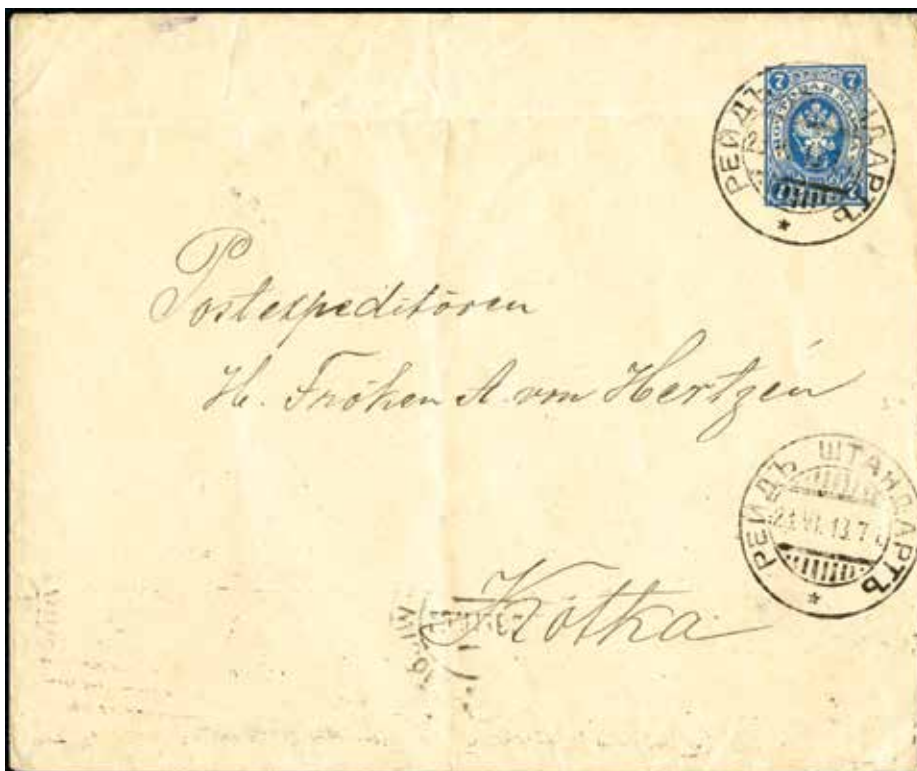 7 7
РЕЙДЪ ШТАНДАРТЪ
Postexpeditören
H. Fröken A. von Hertzen
РЕЙДЪ ШТАНДАРТЪ
23.VI.13.7
Kotka